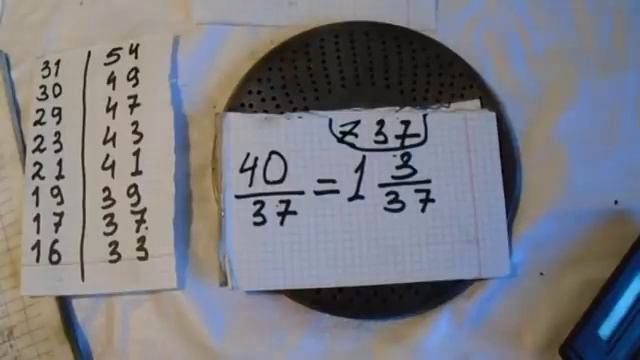 31 | 54
30 | 49
29 | 47
23 | 43
21 | 41
19 | 39
17 | 37
16 | 33
z 37
40/37 = 1 3/37